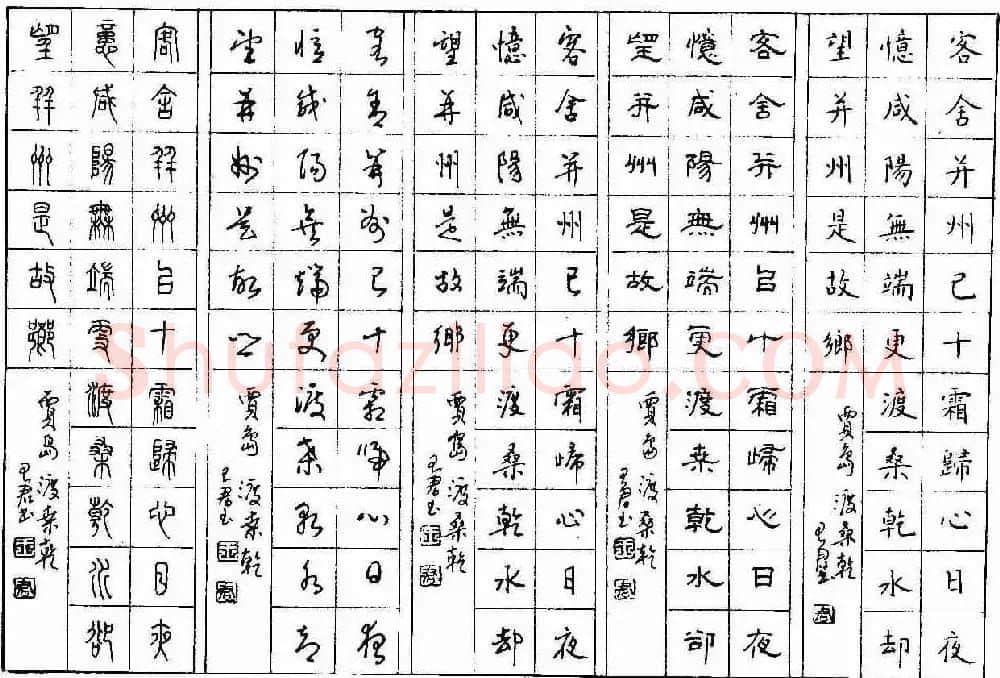 客舍并州已十霜歸心日夜
憶咸陽無端更渡桑乾水却
望并州是故鄉
賈島 渡桑乾
客舍并州已十霜歸心日夜
憶咸陽無端更渡桑乾水卻
望并州是故鄉
賈島 渡桑乾
王君書
客舍并州已十霜歸心日夜
憶咸陽無端更渡桑乾水却
望并州是故鄉
賈島 渡桑乾
王君書
客舍并州已十霜歸心日夜
憶咸陽無端更渡桑乾水却
望并州是故鄉
賈島 渡桑乾
王君書
客舍并州已十霜歸心日夜
憶咸陽無端更渡桑乾水卻
望并州是故鄉
賈島 渡桑乾
王君書
Shufaziliao.COM